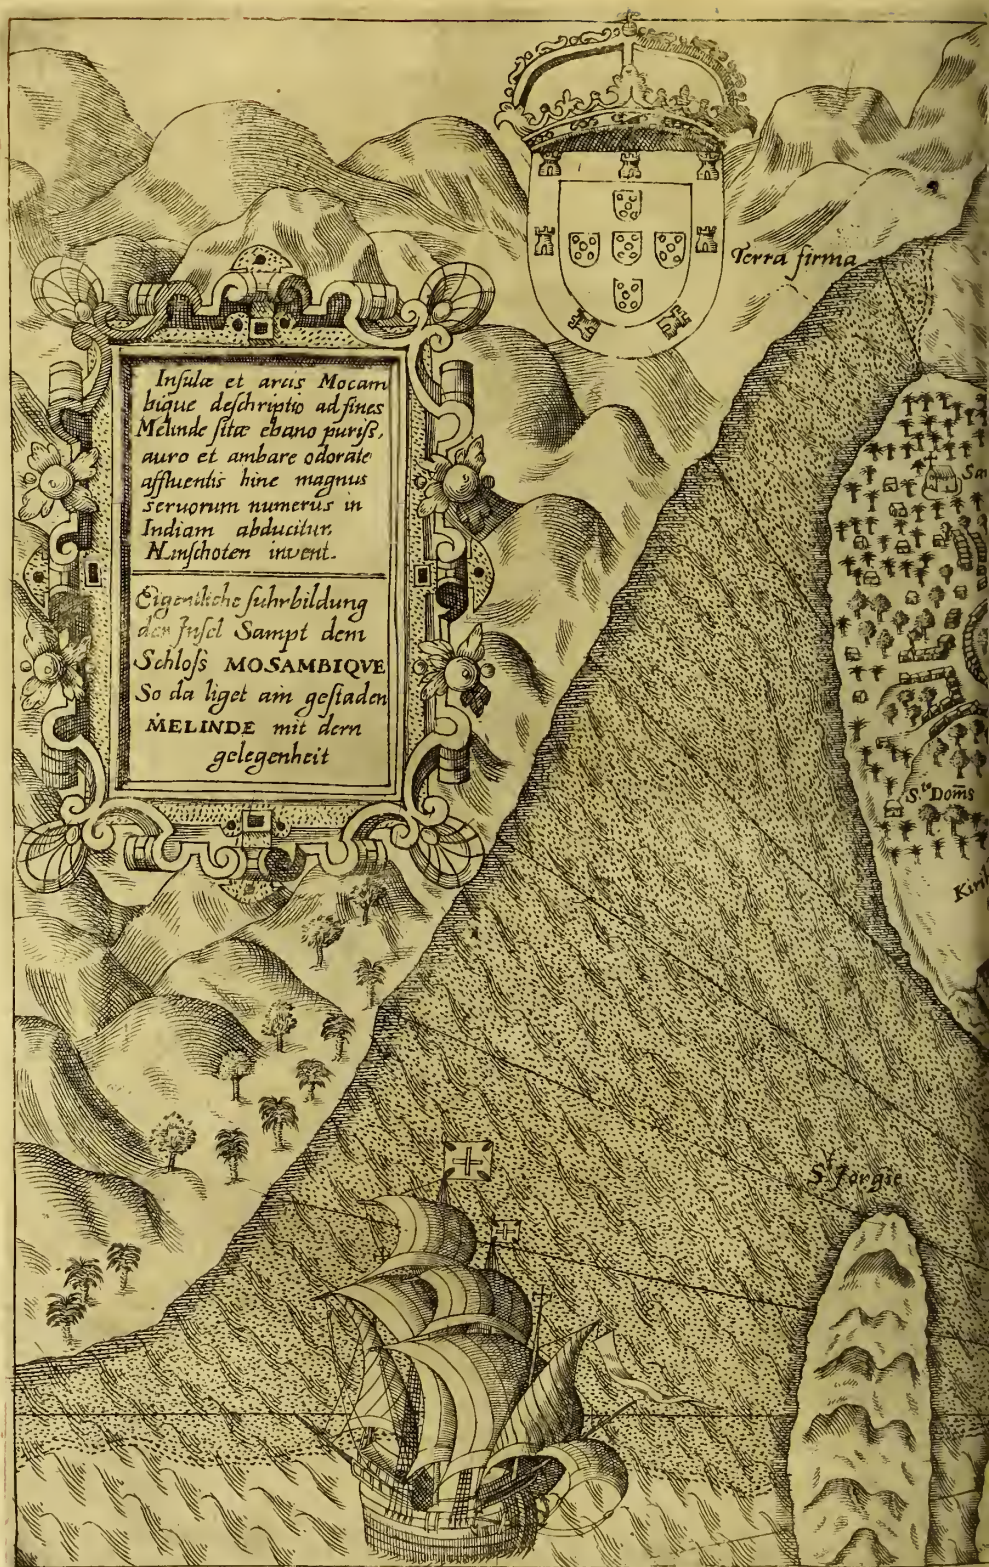 Inſulæ et arcis Mocam
bique deſchriptio ad fines
Melinde ſitæ ebano puriſs,
auro et ambare odorate
affluentis hinc magnus
seruorum numerus in
Indiam abducitur.
Ninſchoten invent.
Eigentliche fuhrbildung
der Inſel Sampt dem
Schloſs MOSAMBIQVE
So da liget am geſtaden
MELINDE mit dern
gelegenheit
Terra firma
Sᵗᵒ Dom̄s
Sᵗ Jorgie